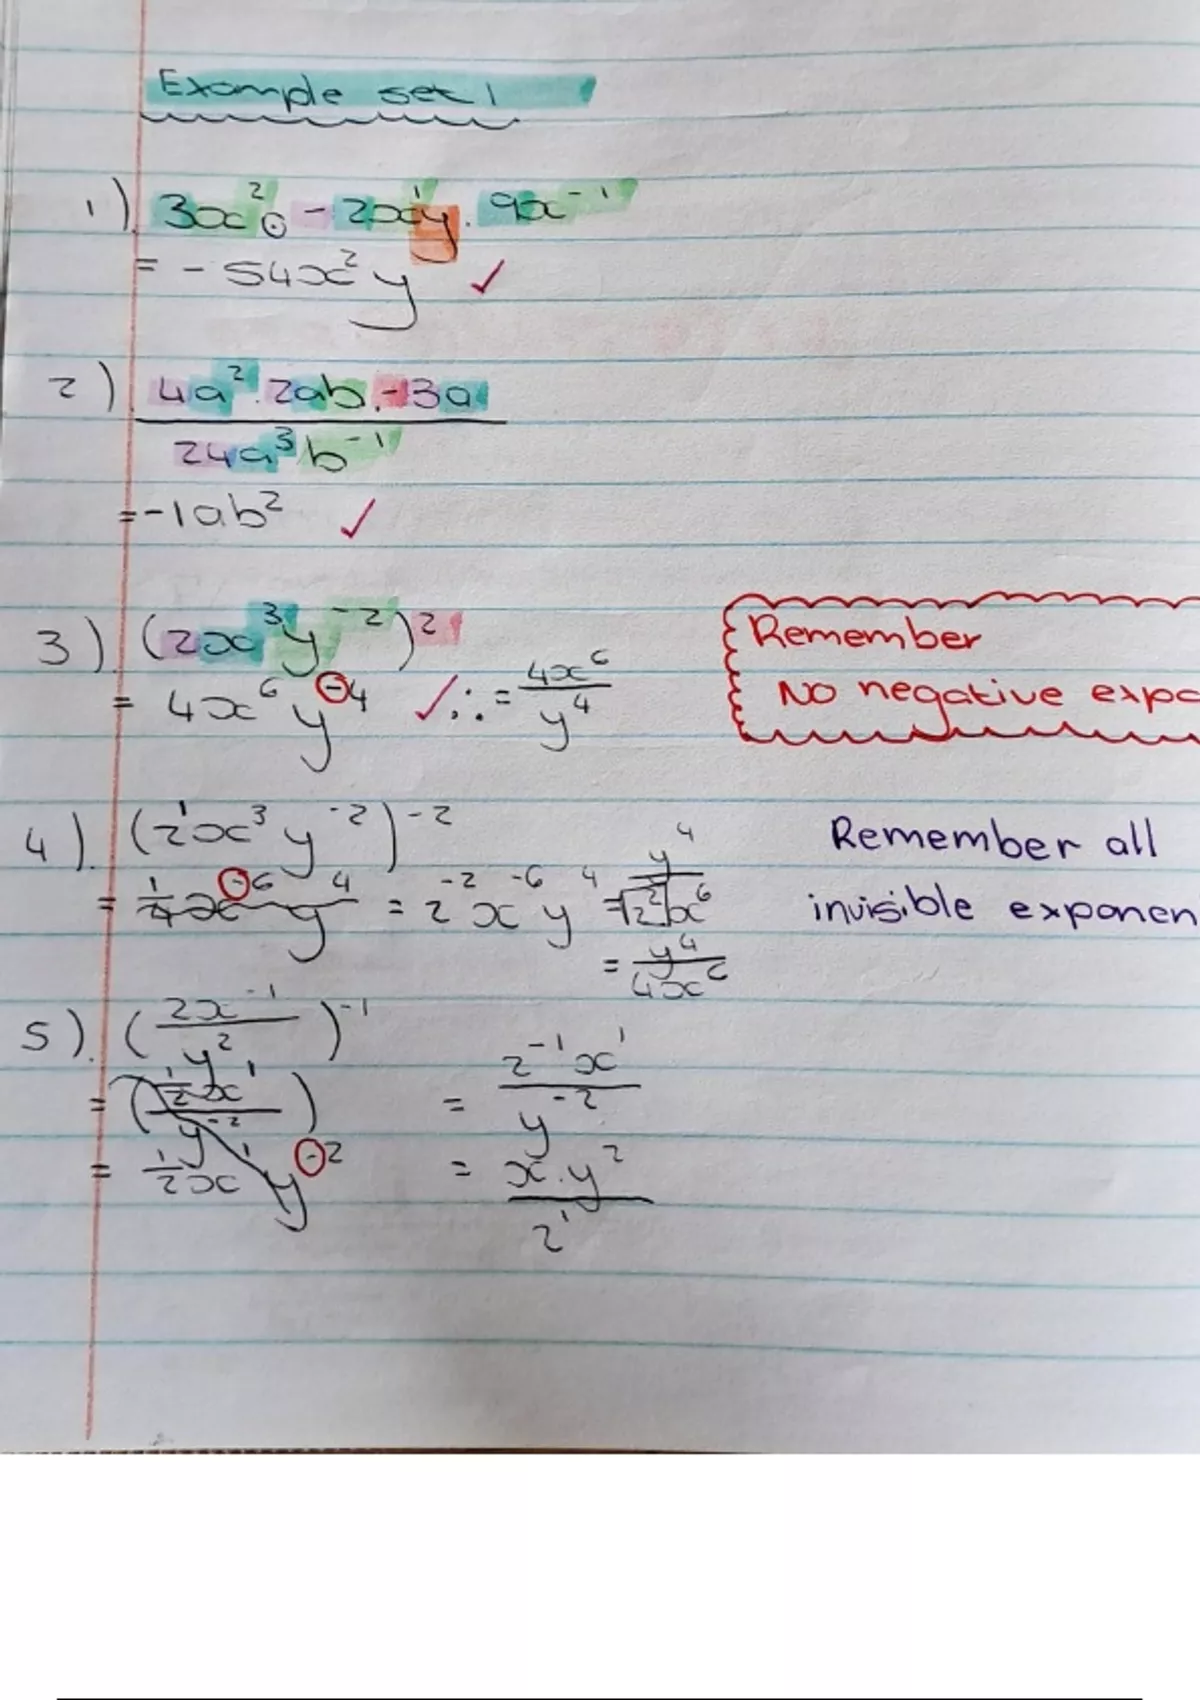 Example set 1
1) 3x² · -2x¹y · 9x⁻¹
= -54x²y ✓
2) 4a² · 2ab · -3a
24a³b⁻¹
= -1ab² ✓
3) (2x³y⁻²)²
= 4x⁶y⁻⁴ ✓ ∴ = 4x⁶ / y⁴
Remember
No negative expo
4) (2¹x³y⁻²)⁻²
= 1/4 x⁻⁶ y⁴ = 2⁻² x⁻⁶ y⁴ = y⁴ / 2² x⁶
= y⁴ / 4x⁶
Remember all
invisible exponen
5) (2x⁻¹ / y²)⁻¹
= (1/2 x¹ / y⁻²) = 2⁻¹x¹ / y⁻²
= 1/2 x¹ y⁻² = x · y² / 2¹